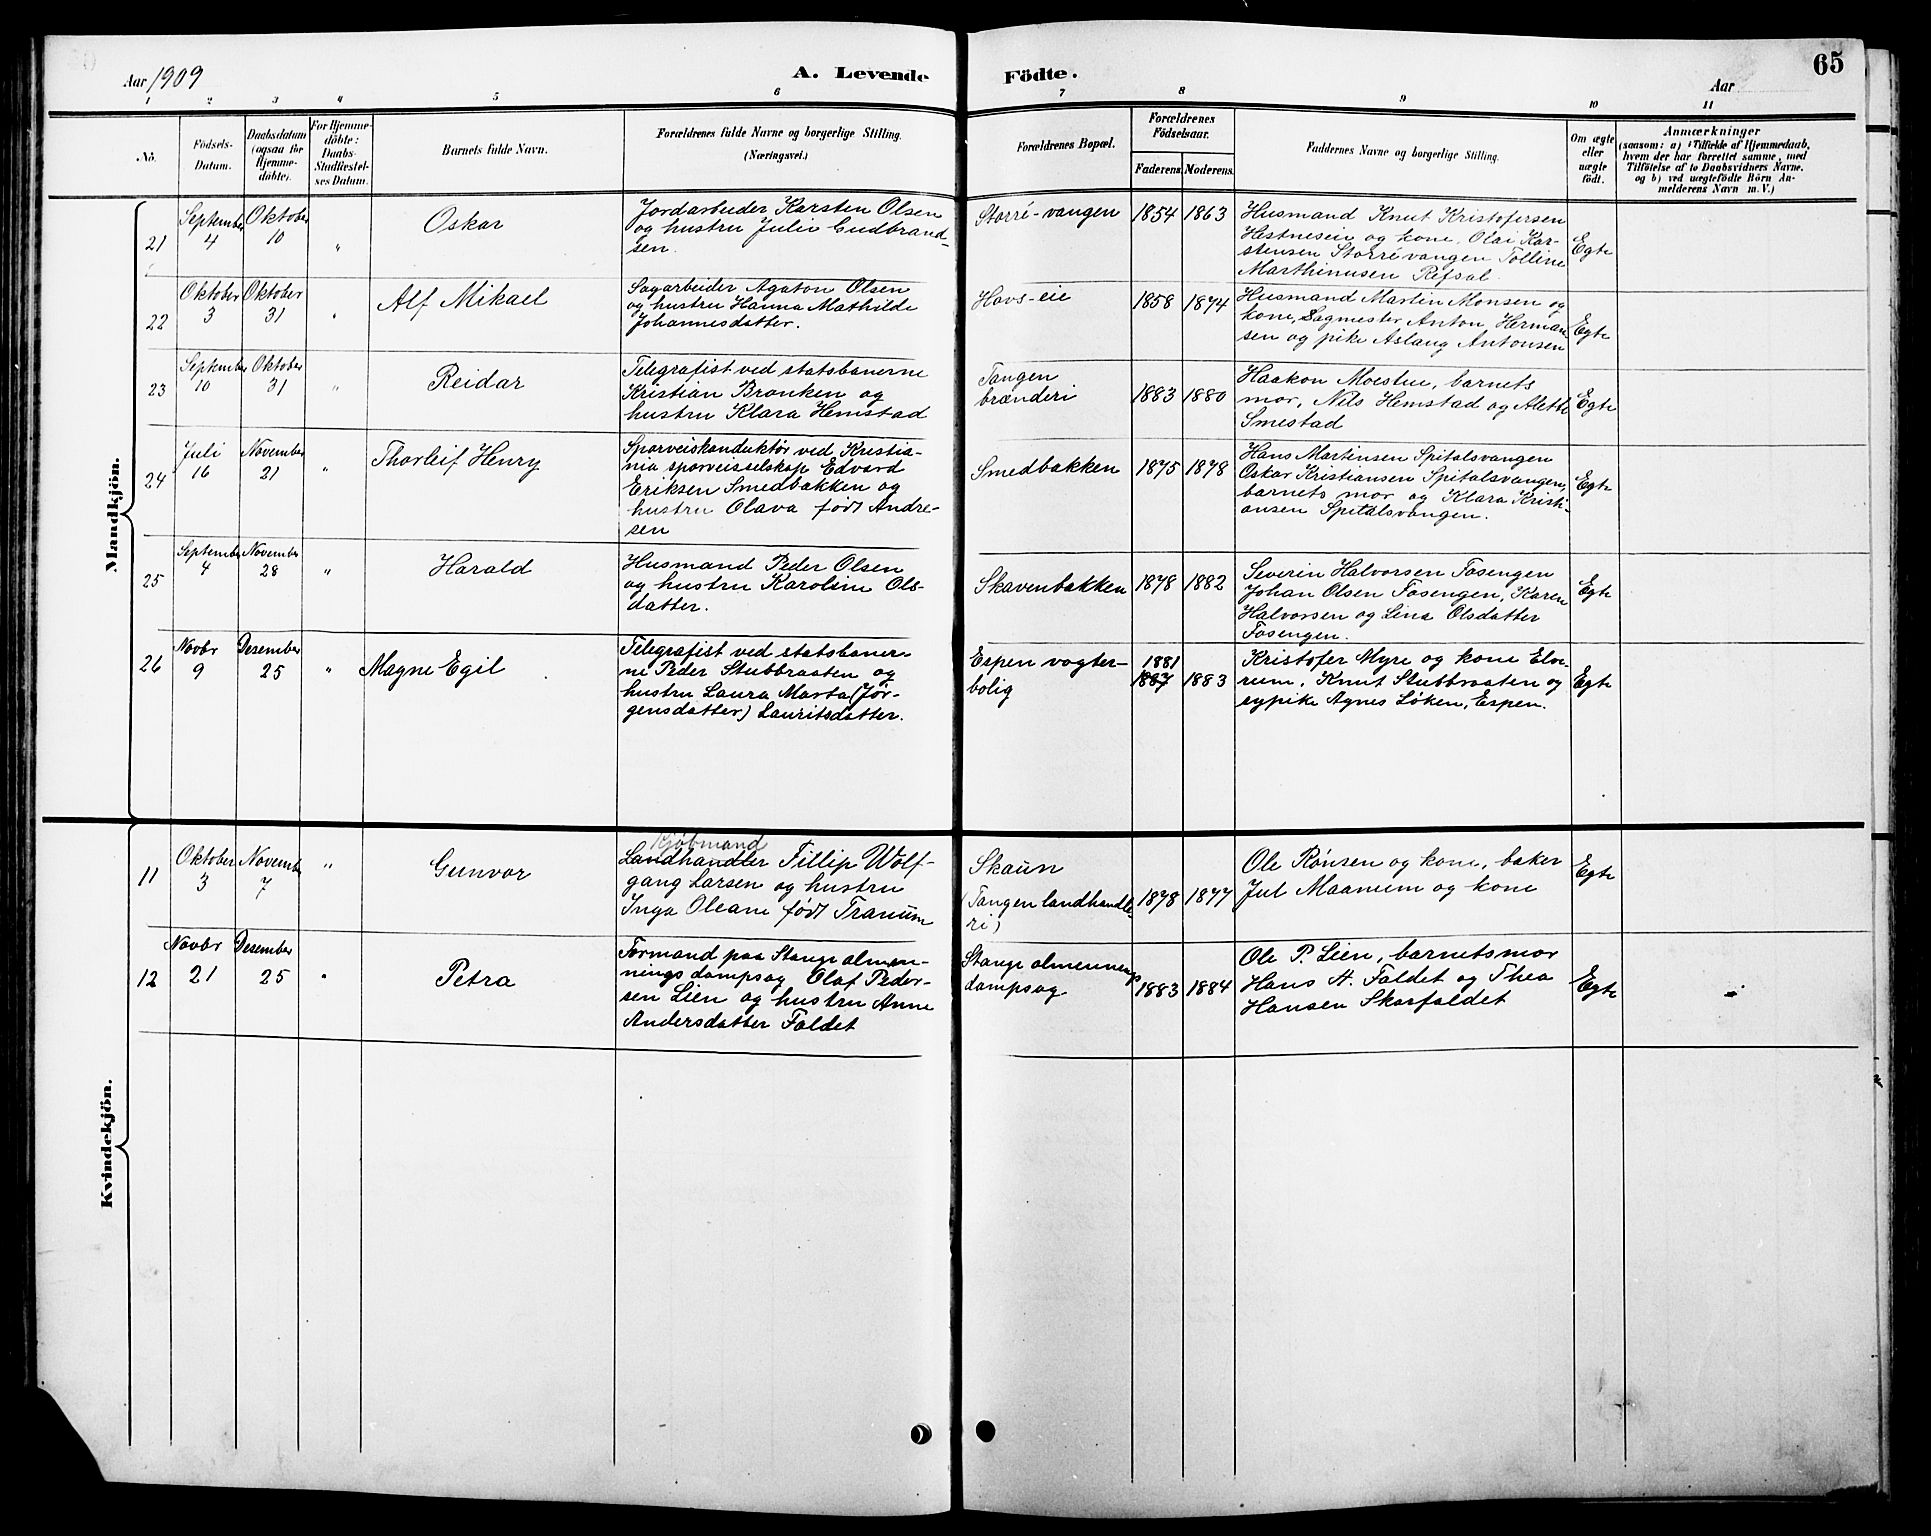 Aar 1909
A. Levende Födte.
Aar
65
1 2 3 4 5 6 7 8 9 10 11
No.
Födsels-
Datum.
Daabsdatum
(ogsaa for
Hjemme-
döbte).
For Hjemme-
döbte:
Daabs-
Stadfæstel-
ses Datum.
Barnets fulde Navn.
Forældrenes fulde Navne og borgerlige Stilling.
(Næringsvei.)
Forældrenes Bopæl.
Forældrenes
Födselsaar.
Faderens.
Moderens.
Faddernes Navne og borgerlige Stilling.
Om ægte
eller
uægte
født.
Anmærkninger
(saasom: a) i Tilfælde af Hjemmedaab,
hvem der har forrettet samme, med
Tilföielse af to Daabsvidners Navne,
og b) ved uægtefödte Börn An-
melderens Navn m. V.)
Mandkjön.
21
September
4
Oktober
10
"
Oskar
Jordarbeider Karsten Olsen
og hustru Julie Gudbrand-
sen.
Storré-vangen
1854
1863
Husmand Knut Kristofersen
Hestneseie og kone, Olai Kar-
stensen Storrévangen Tolline
Marthinusen Refsal.
Egte
22
Oktober
3
Oktober
31
"
Alf Mikael
Sagarbeider Agaton Olsen
og hustru Hanna Mathilde
Johannesdatter.
Hovs-eie
1858
1874
Husmand Martin Monsen og
kone, Sagmester Anton Herman-
sen og pike Aslaug Antonsen
Egte
23
September
10
Oktober
31
"
Reidar
Telegrafist ved statsbanerne
Kristian Bronken og
hustru Klara Hemstad
Tangen
brænderi
1883
1880
Haakon Moestue, barnets
mor, Nils Hemstad og Alette
Smestad
Egte
24
Juli
16
November
21
"
Thorleif Henry
Sporveiskonduktør ved Kristia-
nia sporveisselskap Edvard
Eriksen Smedbakken og
hustru Olava født Andre-
sen
Smedbakken
1875
1878
Hans Martinsen Spitalsvangen
Oskar Kristiansen Spitalsvangen,
barnets mor og Klara Kristi-
ansen Spitalsvangen.
Egte
25
September
4
November
28
"
Harald
Husmand Peder Olsen
og hustru Karoline Ols-
datter.
Skavenbakken
1878
1882
Severin Halvorsen Fosengen
Johan Olsen Fosengen, Karen
Halvorsen og Lina Olsdatter
Fosengen.
Egte
26
Novbr
9
Desember
25
"
Magne Egil
Telegrafist ved statsbaner-
ne Peder Stubbraaten og
hustru Laura Marta (Jør-
gensdatter) Lauritsdatter.
Espen vogter-
bolig
1881
1887
1883
Kristofer Myre og kone Elve-
rum, Knut Stubbraaten og
sypike Agnes Løken, Espen.
Egte
Kvindekjön.
11
Oktober
3
November
7
"
Gunvor
Kjøbmand
Landhandler Fillip Wolf-
gang Larsen og hustru
Inga Oleane født Tranum
Skaun
(Tangen landhandle-
ri)
1878
1877
Ole Rønsen og kone, baker
Jul Maanum og kone
Egte
12
Novbr
21
Desember
25
"
Petra
Formand paa Stange almen-
nings dampsag Olaf Peder-
sen Lien og hustru Anne
Andersdatter Faldet
Stange almennings
dampsag
1883
1884
Ole P. Lien, barnets mor
Hans A. Faldet og Thea
Hansen Skarfaldet
Egte